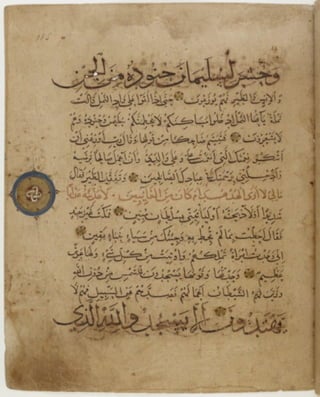 وحشر لسليمان جنوده من الجن
والانس والطير فهم يوزعون حتى اذا اتوا على واد النمل قالت
نملة يا ايها النمل ادخلوا مساكنكم لا يحطمنكم سليمان وجنوده وهم
لا يشعرون فتبسم ضاحكا من قولها وقال رب اوزعني ان
اشكر نعمتك التي انعمت علي وعلى والدي وان اعمل صالحا ترضيه
وادخلني برحمتك في عبادك الصالحين وتفقد الطير فقال
مالي لا ارى الهدهد ام كان من الغائبين لاعذبنه عذابا
شديدا او لاذبحنه او ليأتيني بسلطان مبين فمكث غير بعيد
فقال احطت بما لم تحط به وجئتك من سبإ بنبإ يقين
اني وجدت امرأة تملكهم واوتيت من كل شيء ولها عرش
عظيم وجدتها وقومها يسجدون للشمس من دون الله
وزين لهم الشيطان اعمالهم فصدهم عن السبيل فهم لا
يهتدون الا يسجدوا لله الذي